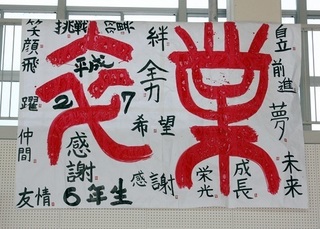 笑顔
飛躍
仲間
友情
挑戦
平成
27
感謝
6年生
絆
全力
希望
感謝
栄光
成長
自立
前進
夢
未来